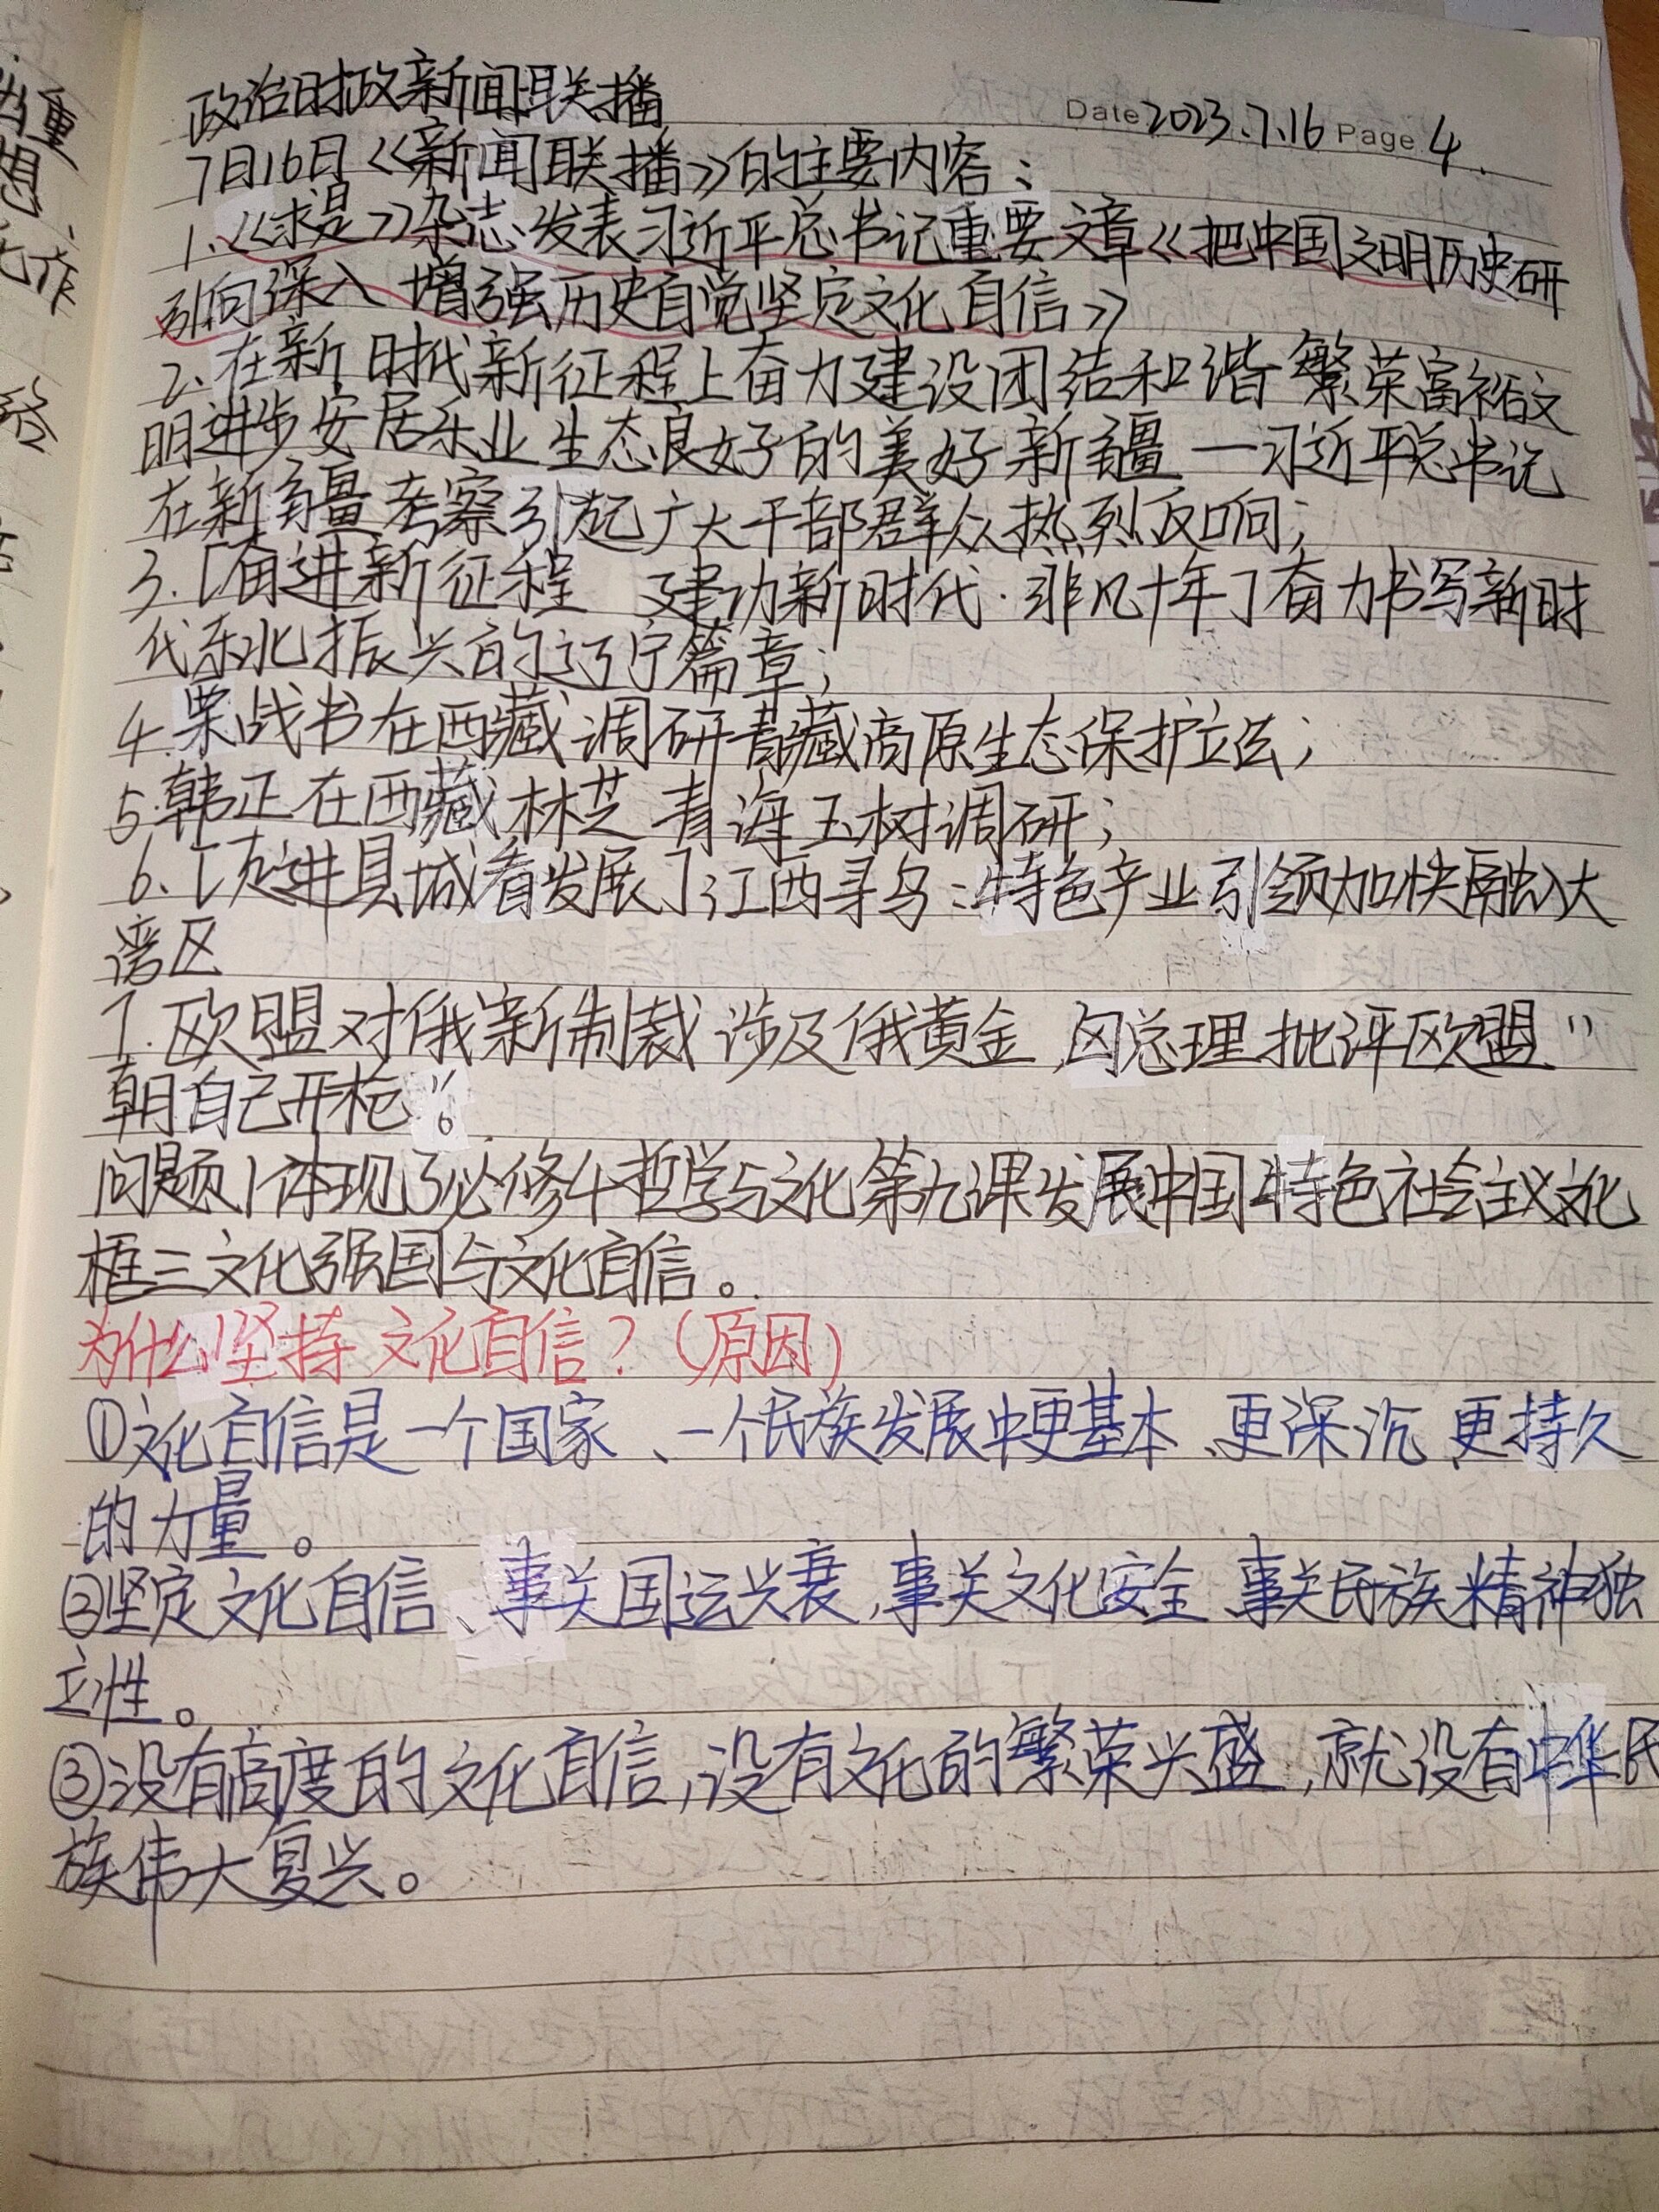 政治时政新闻联播
Date 2023.7.16 Page 4
7月16日《新闻联播》的主要内容：
1.《求是》杂志发表习近平总书记重要文章《把中国文明历史研
引向深入 增强历史自觉坚定文化自信》
2.在新时代新征程上奋力建设团结和谐繁荣富裕文
明进步安居乐业生态良好的美好新疆—习近平总书记
在新疆考察引起广大干部群众热烈反响；
3.「奋进新征程 建功新时代·非凡十年」奋力书写新时
代东北振兴的辽宁篇章；
4.栗战书在西藏调研青藏高原生态保护立法；
5.韩正在西藏林芝青海玉树调研；
6.「走进县城看发展」江西寻乌：特色产业引领加快融入大
湾区
7.欧盟对俄新制裁涉及俄黄金,匈总理批评欧盟"
朝自己开枪"。
问题1体现了必修4哲学与文化第九课发展中国特色社会主义文化
框三文化强国与文化自信。
为什么坚持文化自信？（原因）
①文化自信是一个国家、一个民族发展中更基本、更深沉、更持久
的力量。
②坚定文化自信、事关国运兴衰,事关文化安全、事关民族精神独
立性。
③没有高度的文化自信,没有文化的繁荣兴盛,就没有中华民
族伟大复兴。